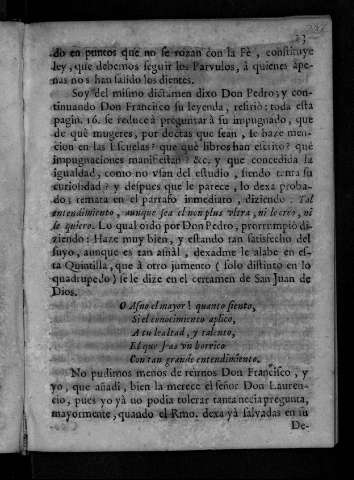 23
do en puntos que no se rozan con la Fè, constituye
ley, que debemos seguir los Parvulos, à quienes ape-
nas nos han salido los dientes.
Soy del mismo dictamen dixo Don Pedro; y con-
tinuando Don Francisco su leyenda, refiriò: toda esta
pagin. 16. se reduce à preguntar à su impugnado, que
de què mugeres, por doctas que sean, se haze men-
cion en las Escuelas? que què libros han escrito? què
impugnaciones manifiestan? &c. y que concedida la
igualdad, como no vsan del estudio, siendo tanta su
curiosidad? y despues que le parece, lo dexa proba-
do; remata en el parrafo inmediato, diziendo: Tal
entendimiento, aunque sea el non plus vltra, ni le creo, ni
le quiero. Lo qual oìdo por Don Pedro, prorrumpiò di-
ziendo: Haze muy bien, y estando tan satisfecho del
suyo, aunque es tan asnàl, dexadme le alabe en es-
ta Quintilla, que à otro jumento (solo distinto en lo
quadrupedo) se le dize en el certamen de San Juan de
Dios.
O Asno el mayor! quanto siento,
Si el conocimiento aplico,
A tu lealtad, y talento,
El que seas vn borrico
Con tan grande entendimiento.
No pudimos menos de reirnos Don Francisco, y
yo, que añadì, bien la merece el señor Don Lauren-
cio, pues yo yà no podia tolerar tanta necia pregunta,
mayormente, quando el Rmo. dexa yà salvadas en su
De-